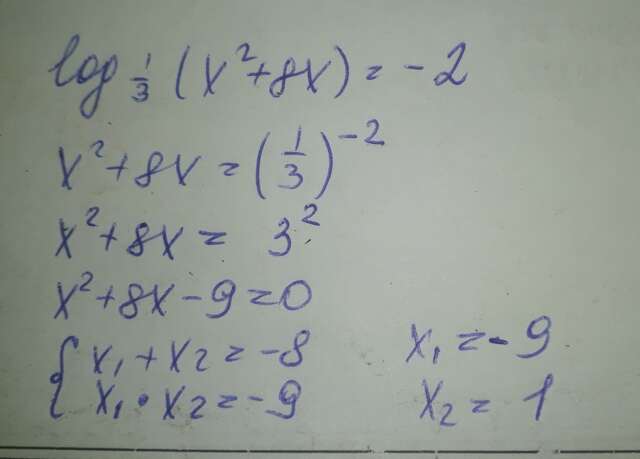 log 1/3 (x²+8x) = -2
x²+8x = (1/3)⁻²
x²+8x = 3²
x²+8x-9=0
{ x₁+x₂=-8
x₁·x₂=-9
x₁=-9
x₂=1